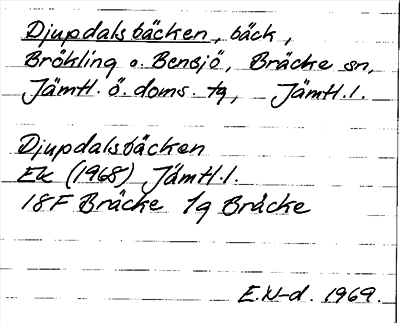 Djupdalsbäcken, bäck,
Bräkling o. Bensjö, Bräcke sn,
Jämtl. ö. doms. tg, Jämtl. l.
Djupdalsbäcken
Ek (1968) Jämtl. l.
18F Bräcke 1g Bräcke
E.N-d. 1969.